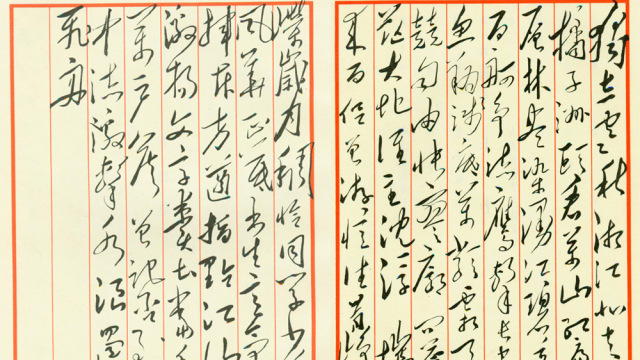 獨立寒秋湘江北去
橘子洲頭看萬山紅遍
層林盡染漫江碧
百舸爭流鷹擊長
魚翔淺底萬類霜天
競自由悵寥廓問
茫大地誰主沉浮 攜
來百侶曾游憶往昔崢
嶸歲月稠恰同學少
風華正茂書生意氣
揮斥方遒指點江山
激揚文字糞土當
萬戶侯曾記否
中流激擊水浪遏
飛舟